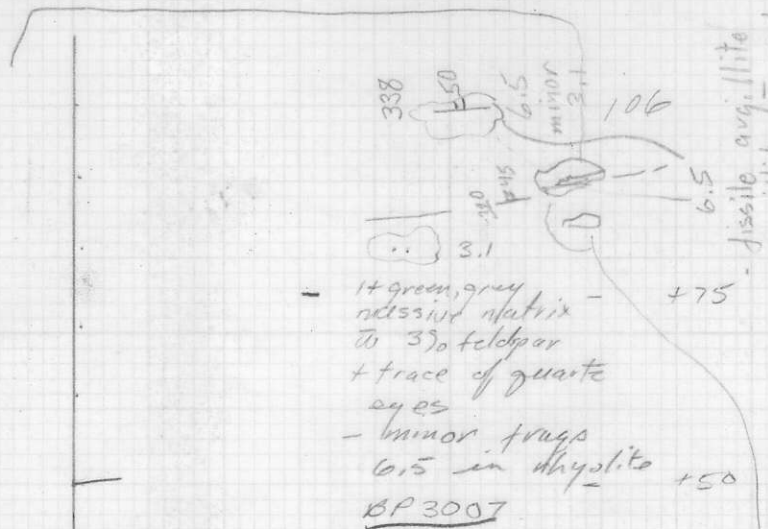 338
50
6.5
minor
3.1
106
320
45
6.5
- fissile argillite
3.1
lt green, grey
massive matrix
to 3% feldspar
+ trace of quartz
eyes
- minor frags
6.5 in rhyolite
BP3007
+75
+50